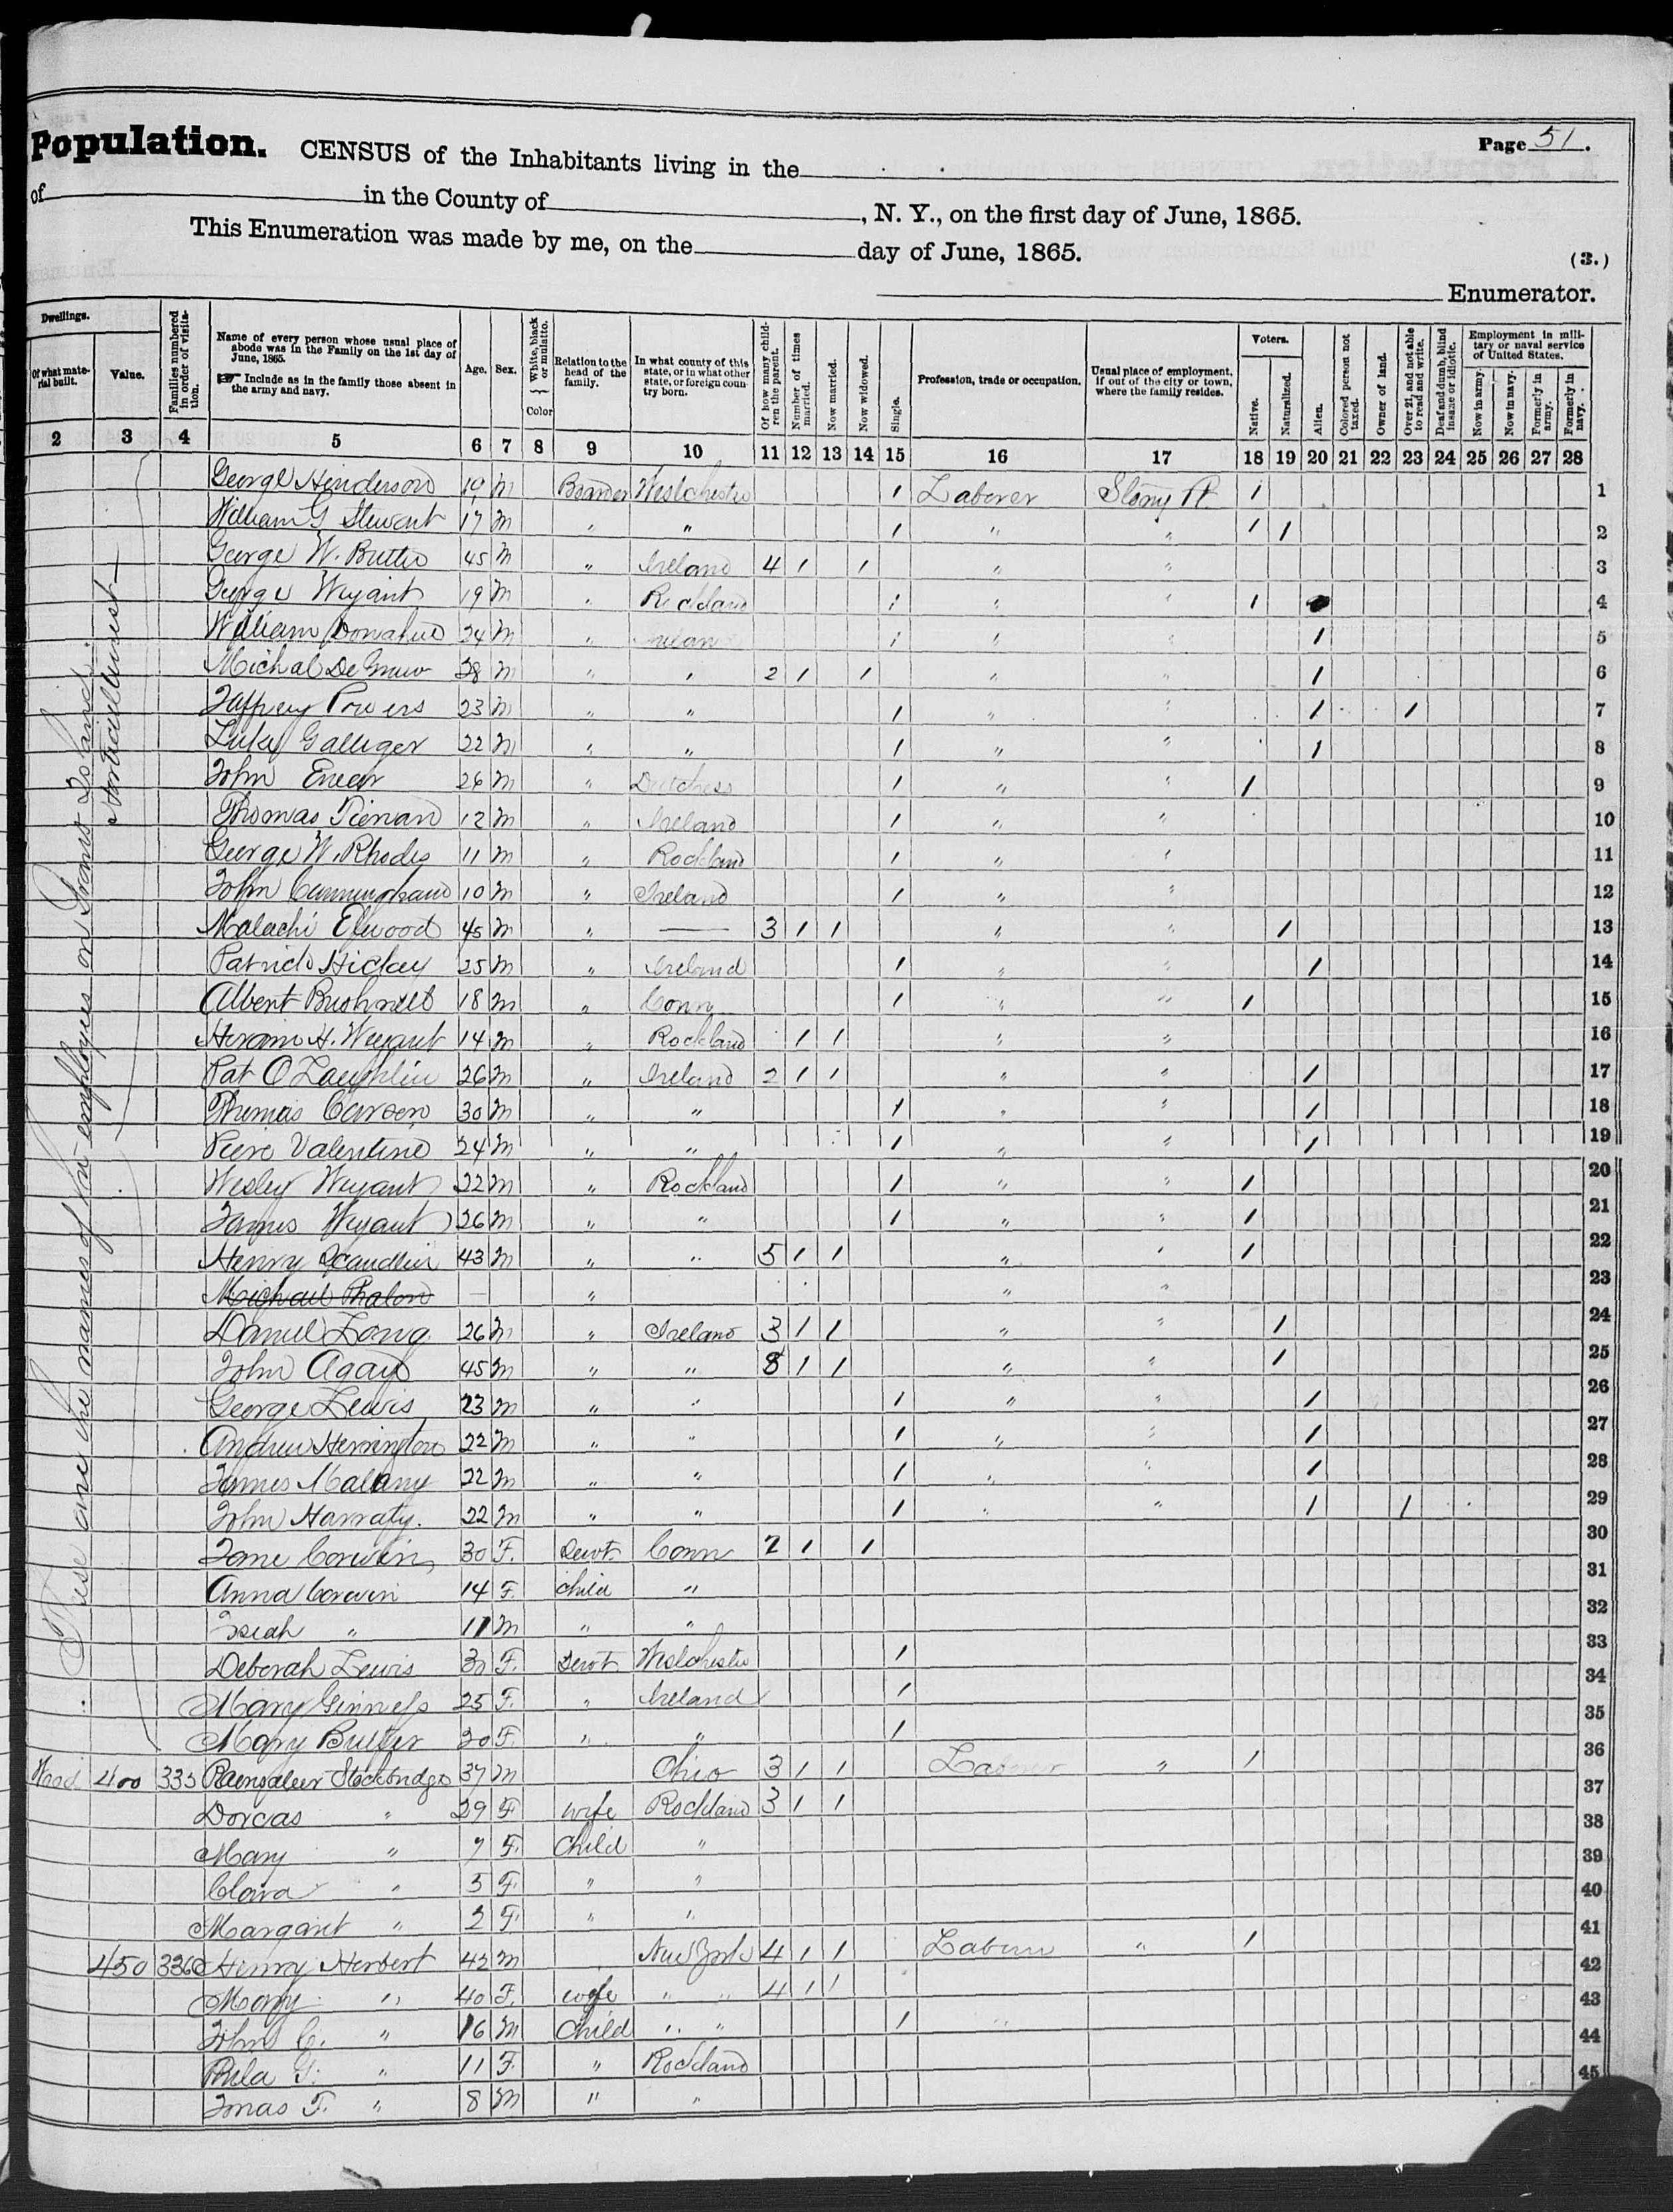 Population. CENSUS of the Inhabitants living in the
Page 51.
of in the County of , N. Y., on the first day of June, 1865.
This Enumeration was made by me, on the day of June, 1865.
(3.)
Enumerator.
Dwellings.
Of what material built.
Value.
Families numbered in order of visitation.
Name of every person whose usual place of abode was in the Family on the 1st day of June, 1865.
☞ Include as in the family those absent in the army and navy.
Age.
Sex.
White, black or mulatto. } Color
Relation to the head of the family.
In what county of this state, or in what other state, or foreign country born.
Of how many children the parent.
Number of times married.
Now married.
Now widowed.
Single.
Profession, trade or occupation.
Usual place of employment, if out of the city or town, where the family resides.
Voters.
Native.
Naturalized.
Alien.
Colored person not taxed.
Owner of land.
Over 21, and not able to read and write.
Deaf and dumb, blind insane or idiotic.
Employment in military or naval service of United States.
Now in army.
Now in navy.
Formerly in army.
Formerly in navy.
2 3 4 5 6 7 8 9 10 11 12 13 14 15 16 17 18 19 20 21 22 23 24 25 26 27 28
These are the names of the employees on Island
George Henderson 19 M Boarder Westchester 1 Laborer Stony Pt. 1 1
William G Stewart 17 M " " 1 " " 1 1 2
George W. 45 M " Ireland 4 1 1 " " 3
George Weyant 19 M " Rockland 1 " " 1 4
William Donahue 24 M " 1 " " 1 5
Michal 38 M " " 2 1 1 " " 1 6
Powers 23 M " " 1 " " 1 1 7
Luke Galliger 22 M " " 1 " " 1 8
John 26 M " Dutchess 1 " " 1 9
Thomas 12 M " Ireland 1 " " 10
George W. Rhodes 11 M " Rockland 1 " " 11
John Cunningham 10 M " Ireland 1 " " 12
Malachi Elwood 45 M " — 3 1 1 " " 1 13
Patrick Hickey 25 M " Ireland 1 " " 1 14
Albert Bushnell 18 M " Conn 1 " " 1 15
Hiram H. Weyant 14 M " Rockland 1 1 " " 16
Pat O Laughlin 26 M " Ireland 2 1 1 " " 1 17
Thomas 30 M " " 1 " " 1 18
Valentine 24 M " " 1 " " 1 19
Wesley Weyant 22 M " Rockland 1 " " 1 20
James Weyant 26 M " " 1 " " 1 21
Henry 43 M " " 5 1 1 " " 1 22
Michael Phalon — " " " 23
Daniel Long 26 M " Ireland 3 1 1 " " 1 24
John Agay 45 M " " 8 1 1 " " 1 25
George Lewis 23 M " " 1 " " 1 26
Andrew Herrington 22 M " " 1 " " 1 27
James Malany 22 M " " 1 " " 1 28
John Harraty. 22 M " " 1 " " 1 1 29
Jane Corwin 30 F. Servt. Conn 2 1 1 30
Anna Corwin 14 F. child " 31
Isiah " 11 M " " 32
Deborah Lewis 30 F. Servt Westchester 1 33
Mary 25 F. " Ireland 1 34
Mary Butler 20 F. " " 1 35
Wood 400 335 Stockbridge 37 M Ohio 3 1 1 Laborer " 1 36
Dorcas " 29 F wife Rockland 3 1 1 37
Mary " 7 F. Child " 38
Clara " 5 F. " " 39
Margaret " 2 F. " " 40
450 336 Henry Herbert 42 M New York 4 1 1 Laborer " 1 41
Mary " 40 F. wife " " 4 1 1 42
John C. " 16 M Child " " 1 " 43
G. " 11 F. " Rockland 44
F. " 8 M " " 45